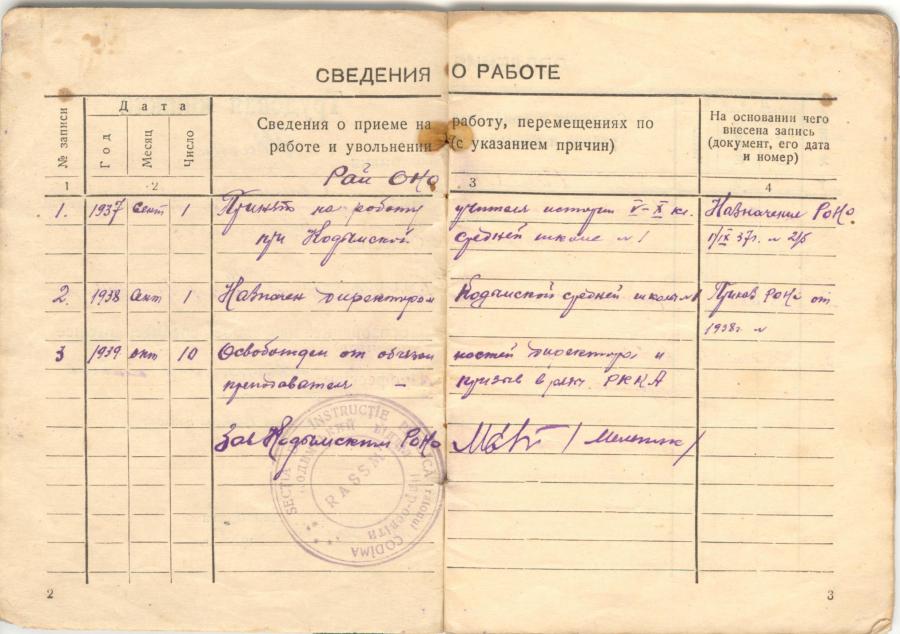 СВЕДЕНИЯ О РАБОТЕ
№ записи
Дата
Год
Месяц
Число
Сведения о приеме на работу, перемещениях по
работе и увольнении (с указанием причин)
На основании чего
внесена запись
(документ, его дата
и номер)
1
2
3
4
Рай ОНО
1. 1937 Сент 1 Принят на работу учителя истории V-X кл. Назначение РОНО
при Кодымской средней школе №1 1/IX 37г. № 215
2. 1938 Сент 1 Назначен директором Кодымской средней школы №1 Приказ РОНО от
1938г. №
3 1939 окт 10 Освобожден от обязанностей директора и
преподавателя - призыв в РККА
Зав Кодымским РОНО / Мелетик /
SECTIA INSTRUCTIE PUBLICA raionul CODIMA
RASSM
2
3